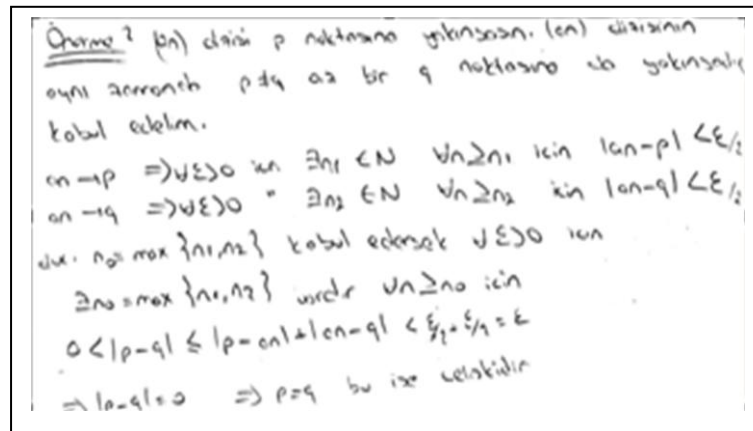 Önerme 2 (an) dizisi p noktasına yakınsasın. (an) dizisinin
aynı zamanda p≠q az bir q noktasına da yakınsadığı
kabul edelim.
an→p ⇒∀ε>0 için ∃n₁∈N ∀n≥n₁ için |an-p|<ε/2
an→q ⇒∀ε>0 " ∃n₂∈N ∀n≥n₂ için |an-q|<ε/2
n₀=max {n₁,n₂} kabul edersek ∀ε>0 için
∃n₀=max {n₁,n₂} vardır ∀n≥n₀ için
0<|p-q|≤|p-an|+|an-q|<ε/2+ε/2=ε
⇒|p-q|=0 ⇒p=q bu ise çelişkidir